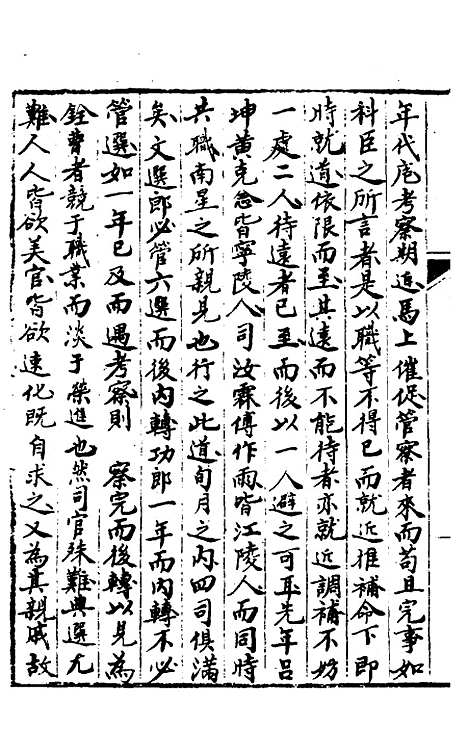 年代庖考察期近馬上催促管察者來而苟且完事如
科臣之所言者是以職等不得已而就近推補命下即
時就道依限而至其遠而不能待者亦就近調補不妨
一處二人待遠者已至而後以一人避之可耳先年呂
坤黃克念皆寧陵人司汝霖傅作雨皆江陵人而同時
共職南星之所親見也行之此道旬月之內四司俱滿
矣文選郎必管六選而後內轉功郎一年而內轉不必
管選如一年已及而遇考察則 察完而後轉以見為
銓曹者競于職業而淡于榮進也然司官殊難典選尤
難人人皆欲美官皆欲速化既自求之又為其親戚故